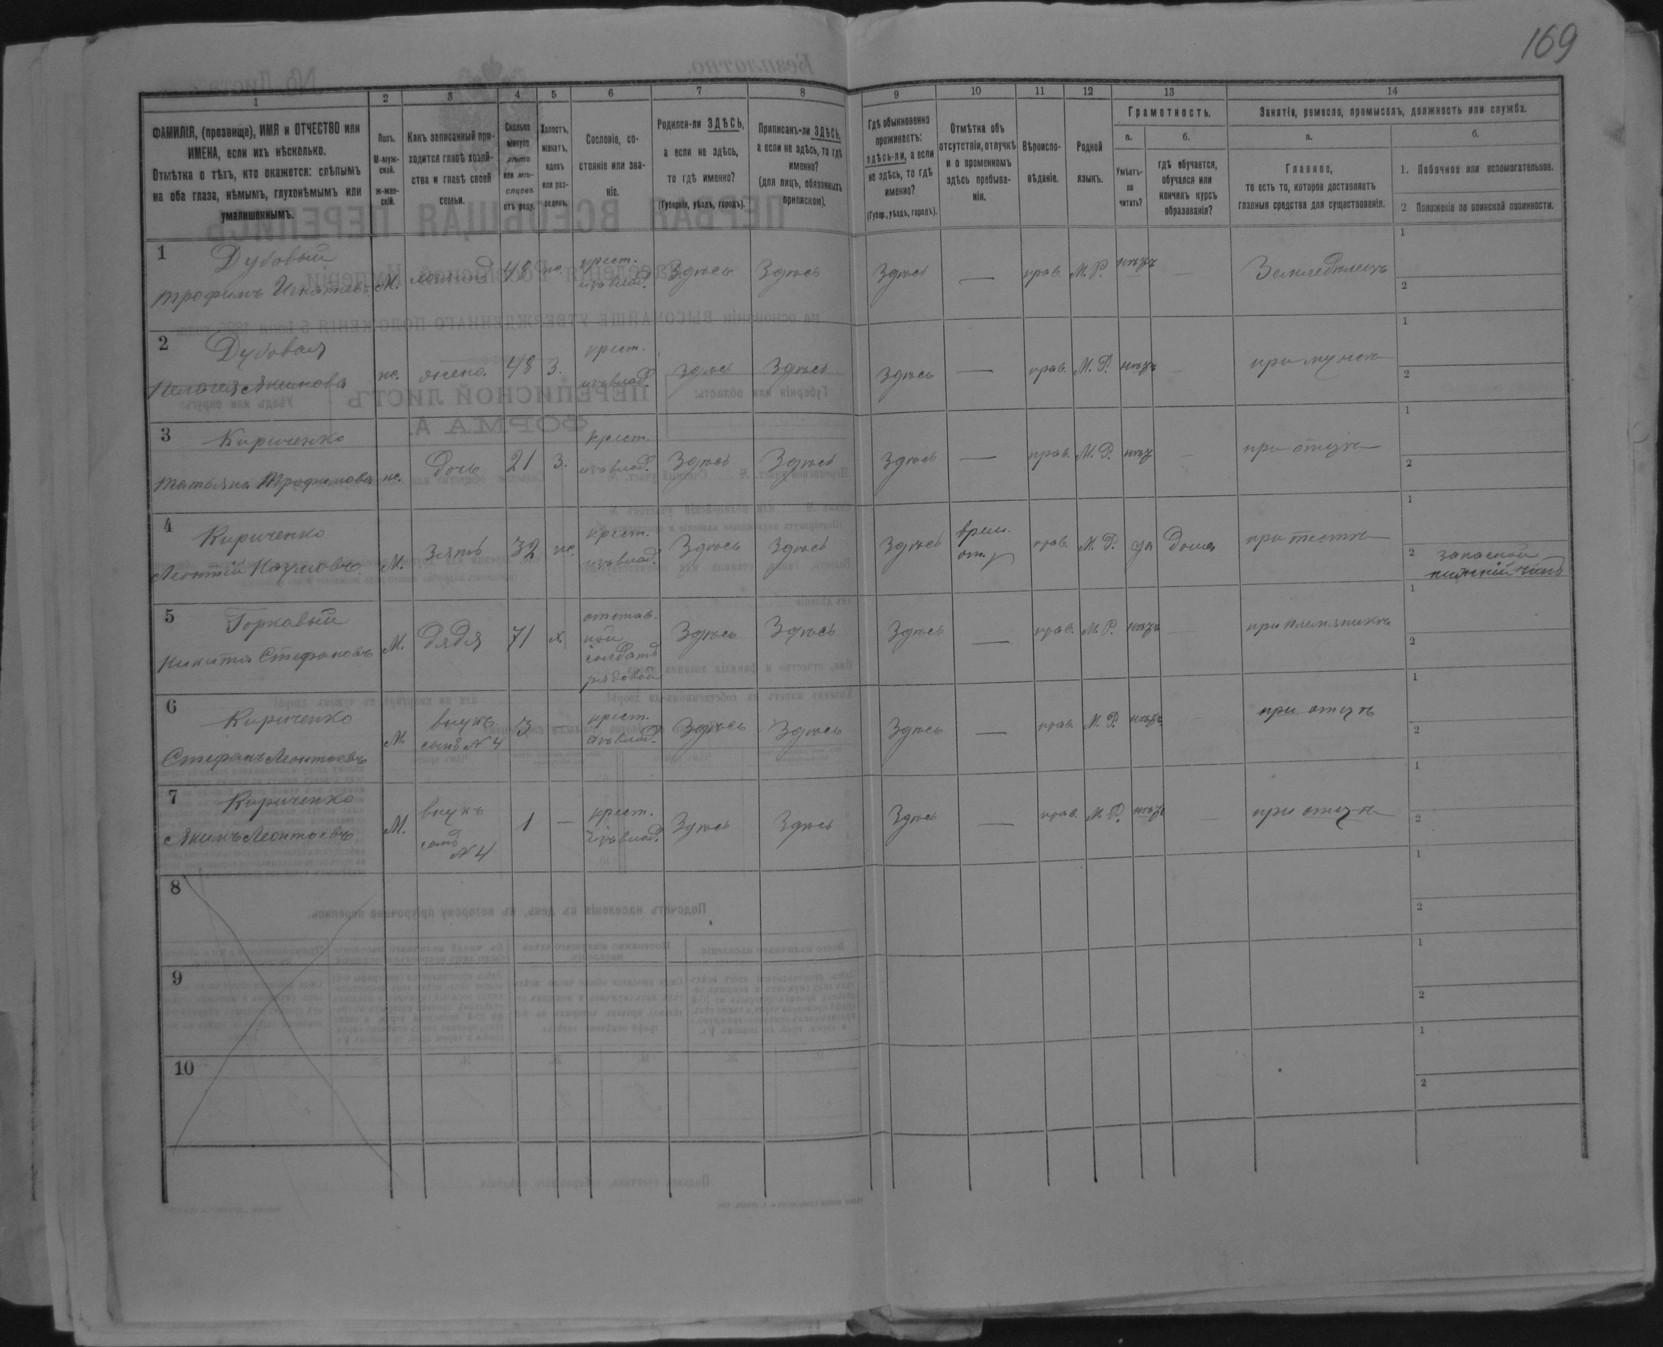 169
1 2 3 4 5 6 7 8 9 10 11 12 13 14
ФАМИЛІЯ, (прозвище), ИМЯ и ОТЧЕСТВО или
ИМЕНА, если ихъ нѣсколько.
Отмѣтка о тѣхъ, кто окажется: слѣпымъ
на оба глаза, нѣмымъ, глухонѣмымъ или
умалишеннымъ.
Полъ.
М-муж-
ской.
ж-жен-
скій.
Какъ записанный при-
ходится главѣ хозяй-
ства и главѣ своей
семьи.
Сколько
минуло
лѣтъ
или мѣ-
сяцевъ
отъ роду.
Холостъ,
женатъ,
вдовъ
или раз-
веденъ.
Сословіе, со-
стояніе или зва-
ніе.
Родился-ли ЗДѢСЬ,
а если не здѣсь,
то гдѣ именно?
(Губернія, уѣздъ, городъ).
Приписанъ-ли ЗДѢСЬ,
а если не здѣсь, то гдѣ
именно?
(для лицъ, обязанныхъ
припискою).
Гдѣ обыкновенно
проживаетъ:
здѣсь-ли, а если
не здѣсь, то гдѣ
именно?
(Губер., уѣздъ, городъ).
Отмѣтка объ
отсутствіи, отлучкѣ
и о временномъ
здѣсь пребыва-
ніи.
Вѣроиспо-
вѣданіе.
Родной
языкъ.
Грамотность.
а.
Умѣетъ-
ли
читать?
б.
гдѣ обучается,
обучался или
кончилъ курсъ
образованія?
Занятіе, ремесло, промыселъ, должность или служба.
а.
Главное,
то есть то, которое доставляетъ
главныя средства для существованія.
б.
1. Побочное или вспомогательное.
2 Положеніе по воинской повинности.
1 Дубовый
Трофимъ Игнатьев. М. хозяинъ 48 ж. крест.
изъ влад. Здѣсь Здѣсь Здѣсь — прав. М. Р. нѣтъ — Земледѣлецъ 1
2
2 Дубовая
Пелагея Акимова ж. жена 48 З. крест.
изъ влад. Здѣсь Здѣсь Здѣсь — прав. М. Р. нѣтъ — при мужѣ 1
2
3 Кириченко
Татьяна Трофимова ж. дочь 21 З. крест.
изъ влад. Здѣсь Здѣсь Здѣсь — прав. М. Р. нѣтъ — при отцѣ 1
2
4 Кириченко
Леонтій Наумовъ М. Зять 32 ж. крест.
изъ влад. Здѣсь Здѣсь Здѣсь врем.
отл. прав. М. Р. да дома при тестѣ 1
2 запасной
нижній чинъ
5 Горковый
Никита Стефановъ М. дядя 71 х. отстав-
ной
солдатъ
рядовой Здѣсь Здѣсь Здѣсь — прав. М. Р. нѣтъ — при племяникѣ 1
2
6 Кириченко
Стефанъ Леонтьевъ М внукъ
сынъ № 4 3 — крест.
изъ влад. Здѣсь Здѣсь Здѣсь — прав. М. Р. нѣтъ при отцѣ 1
2
7 Кириченко
Акимъ Леонтьевъ М. внукъ
сынъ
№ 4 1 — крест.
изъ влад. Здѣсь Здѣсь Здѣсь — прав. М. Р. нѣтъ — при отцѣ 1
2
8 1
2
9 1
2
10 1
2